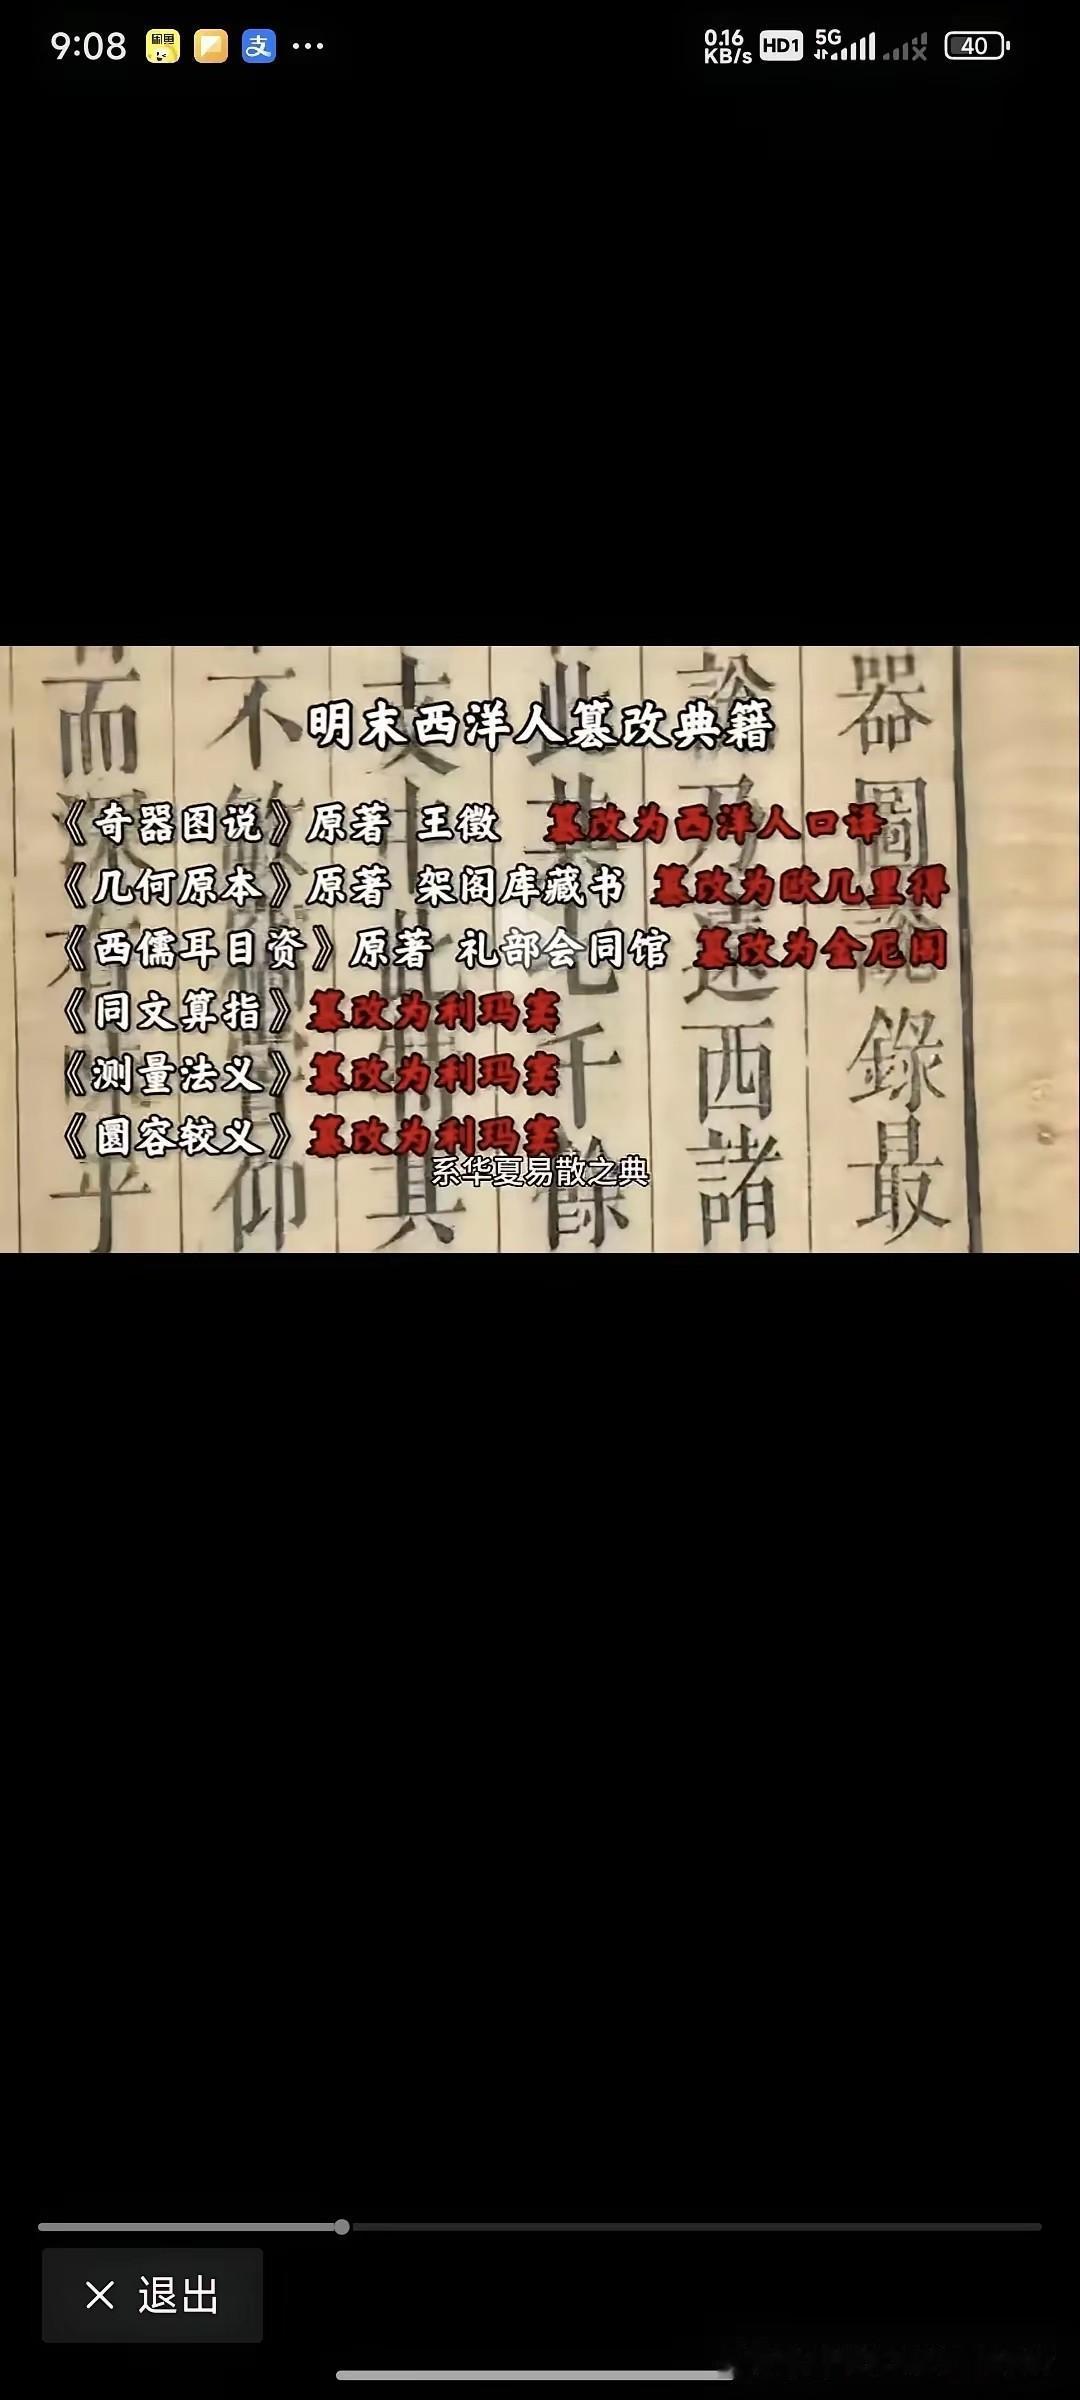 9:08
闲鱼
支
0.16
KB/s
HD1
5G
40
明末西洋人篡改典籍
《奇器图说》原著 王徵 篡改为西洋人口译
《几何原本》原著 架阁库藏书 篡改为欧几里得
《西儒耳目资》原著 礼部会同馆 篡改为金尼阁
《同文算指》篡改为利玛窦
《测量法义》篡改为利玛窦
《圆容较义》篡改为利玛窦
系华夏易散之典
器圖說錄最
說乃遠西諸
此其七千餘
夫中此其
不
仰
而深
乎
× 退出